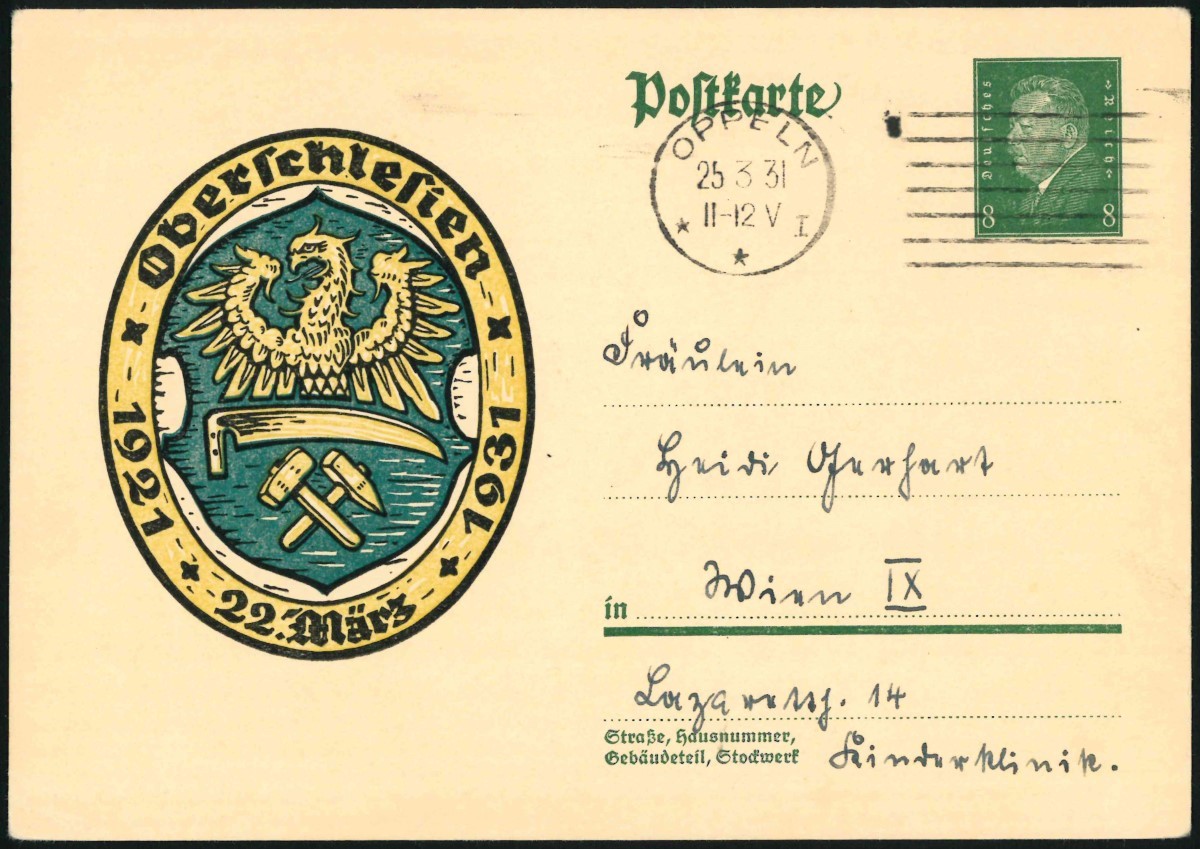 Oberschlesien
1921
1931
22. März
Postkarte
OPPELN
25 3 31
11-12 V
I
Deutsches
Reich
8 8
Fräulein
Heidi Gerhart
in Wien IX
Lazarettg. 14
Straße, Hausnummer,
Gebäudeteil, Stockwerk
Kinderklinik.